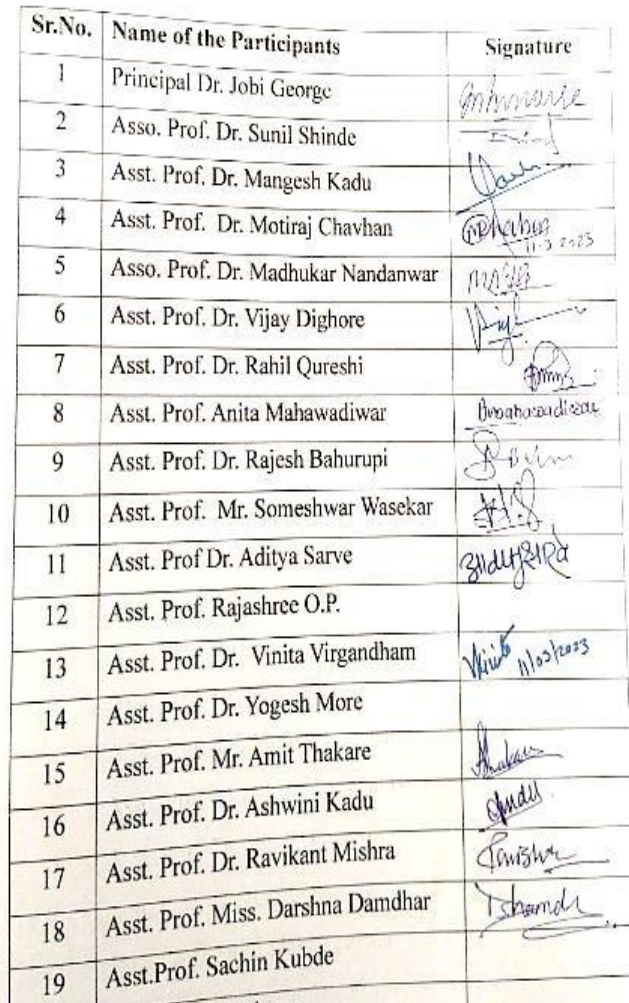 Sr.No. Name of the Participants Signature
1 Principal Dr. Jobi George
2 Asso. Prof. Dr. Sunil Shinde
3 Asst. Prof. Dr. Mangesh Kadu
4 Asst. Prof. Dr. Motiraj Chavhan 11-3 2023
5 Asso. Prof. Dr. Madhukar Nandanwar
6 Asst. Prof. Dr. Vijay Dighore
7 Asst. Prof. Dr. Rahil Qureshi
8 Asst. Prof. Anita Mahawadiwar
9 Asst. Prof. Dr. Rajesh Bahurupi
10 Asst. Prof. Mr. Someshwar Wasekar
11 Asst. Prof Dr. Aditya Sarve
12 Asst. Prof. Rajashree O.P.
13 Asst. Prof. Dr. Vinita Virgandham 11/03/2023
14 Asst. Prof. Dr. Yogesh More
15 Asst. Prof. Mr. Amit Thakare
16 Asst. Prof. Dr. Ashwini Kadu
17 Asst. Prof. Dr. Ravikant Mishra
18 Asst. Prof. Miss. Darshna Damdhar
19 Asst.Prof. Sachin Kubde